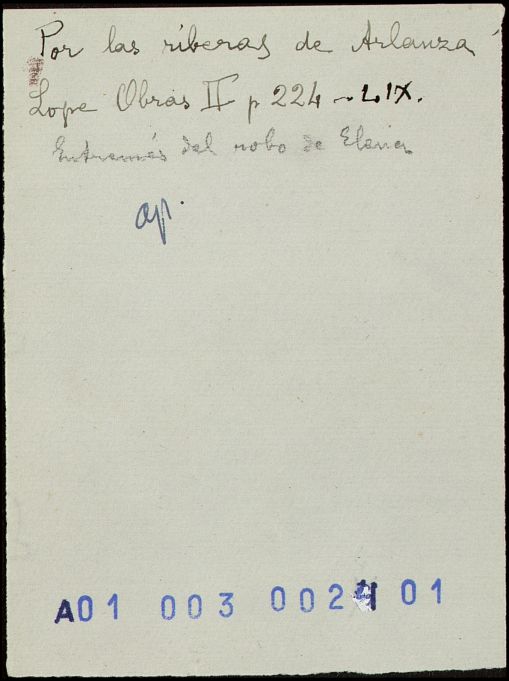 Por las riberas de Arlanza
Lope Obras II p 224 - LIX.
Entremés del robo de Elena
ap.
A01 003 0024 01